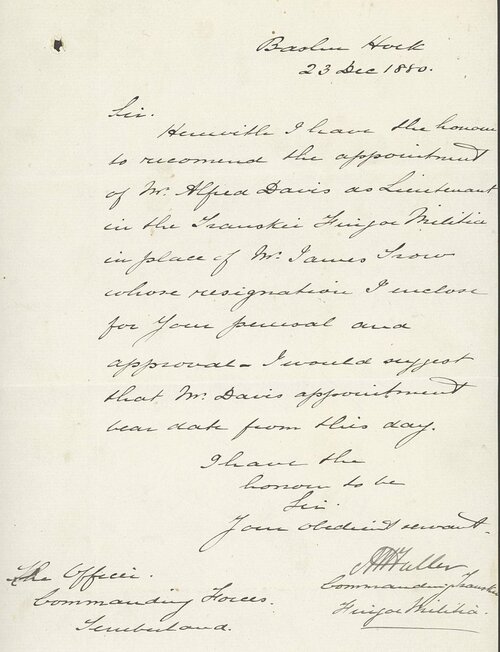 Hock
23 Dec 1880.
Sir.
Herewith I have the honour
to recomend the appointment
of Mr. Alfred Davis as Lieutenant
in the Transkei Fingoe Militia
in place of Mr. James Trow
whose resignation I enclose
for your perusal and
approval - I would suggest
that Mr. Davis appointment
bear date from this day.
I have the
honour to be
Sir.
Your obedient servant.
Fuller
Commanding Transkei
Fingoe Militia.
The Officer.
Commanding Forces.
Tembuland.